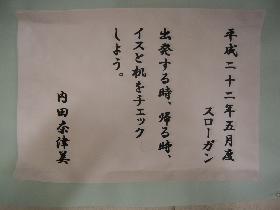 平成二十二年五月度
スローガン
出発する時、帰る時、
イスと机をチェック
しよう。
内田奈津美